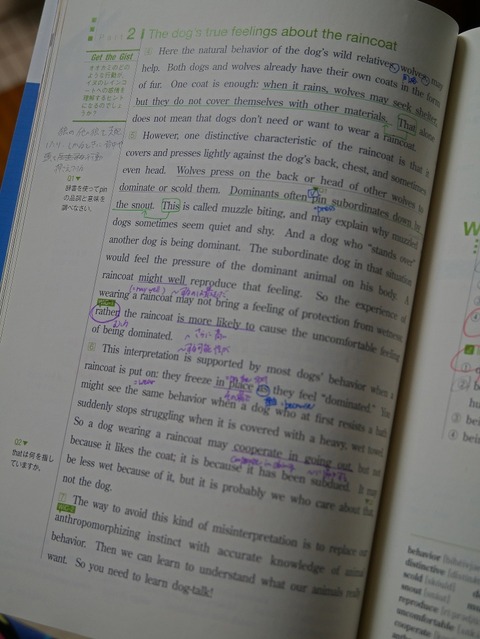 Part 2 The dog's true feelings about the raincoat
Get the Gist
オオカミのどの
ような行動が、
イヌのレインコ
ートへの感情を
理解するヒント
になるのでしょ
うか?
4 Here the natural behavior of the dog's wild relatives, wolves, may
help. Both dogs and wolves already have their own coats in the form
of fur. One coat is enough: when it rains, wolves may seek shelter,
but they do not cover themselves with other materials. That alone
does not mean that dogs don't need or want to wear a raincoat.
5 However, one distinctive characteristic of the raincoat is that it
covers and presses lightly against the dog's back, chest, and sometimes
even head. Wolves press on the back or head of other wolves to
dominate or scold them. Dominants often pin subordinates down by
the snout. This is called muzzle biting, and may explain why muzzled
dogs sometimes seem quiet and shy. And a dog who "stands over"
another dog is being dominant. The subordinate dog in that situation
would feel the pressure of the dominant animal on his body. A
raincoat might well reproduce that feeling. So the experience of
wearing a raincoat may not bring a feeling of protection from wetness,
rather the raincoat is more likely to cause the uncomfortable feeling
of being dominated.
Q1▼
辞書を使ってpin
の品詞と意味を
調べなさい。
6 This interpretation is supported by most dogs' behavior when a
raincoat is put on: they freeze in place as they feel "dominated." You
might see the same behavior when a dog who at first resists a bath
suddenly stops struggling when it is covered with a heavy, wet towel.
So a dog wearing a raincoat may cooperate in going out, but not
because it likes the coat; it is because it has been subdued. It may
be less wet because of it, but it is probably we who care about that,
not the dog.
Q2▼
thatは何を指し
ていますか。
7 The way to avoid this kind of misinterpretation is to replace our
anthropomorphizing instinct with accurate knowledge of animal
behavior. Then we can learn to understand what our animals really
want. So you need to learn dog-talk!
behavior
distinctive
scold
snout
reproduce
uncomfortable
cooperate